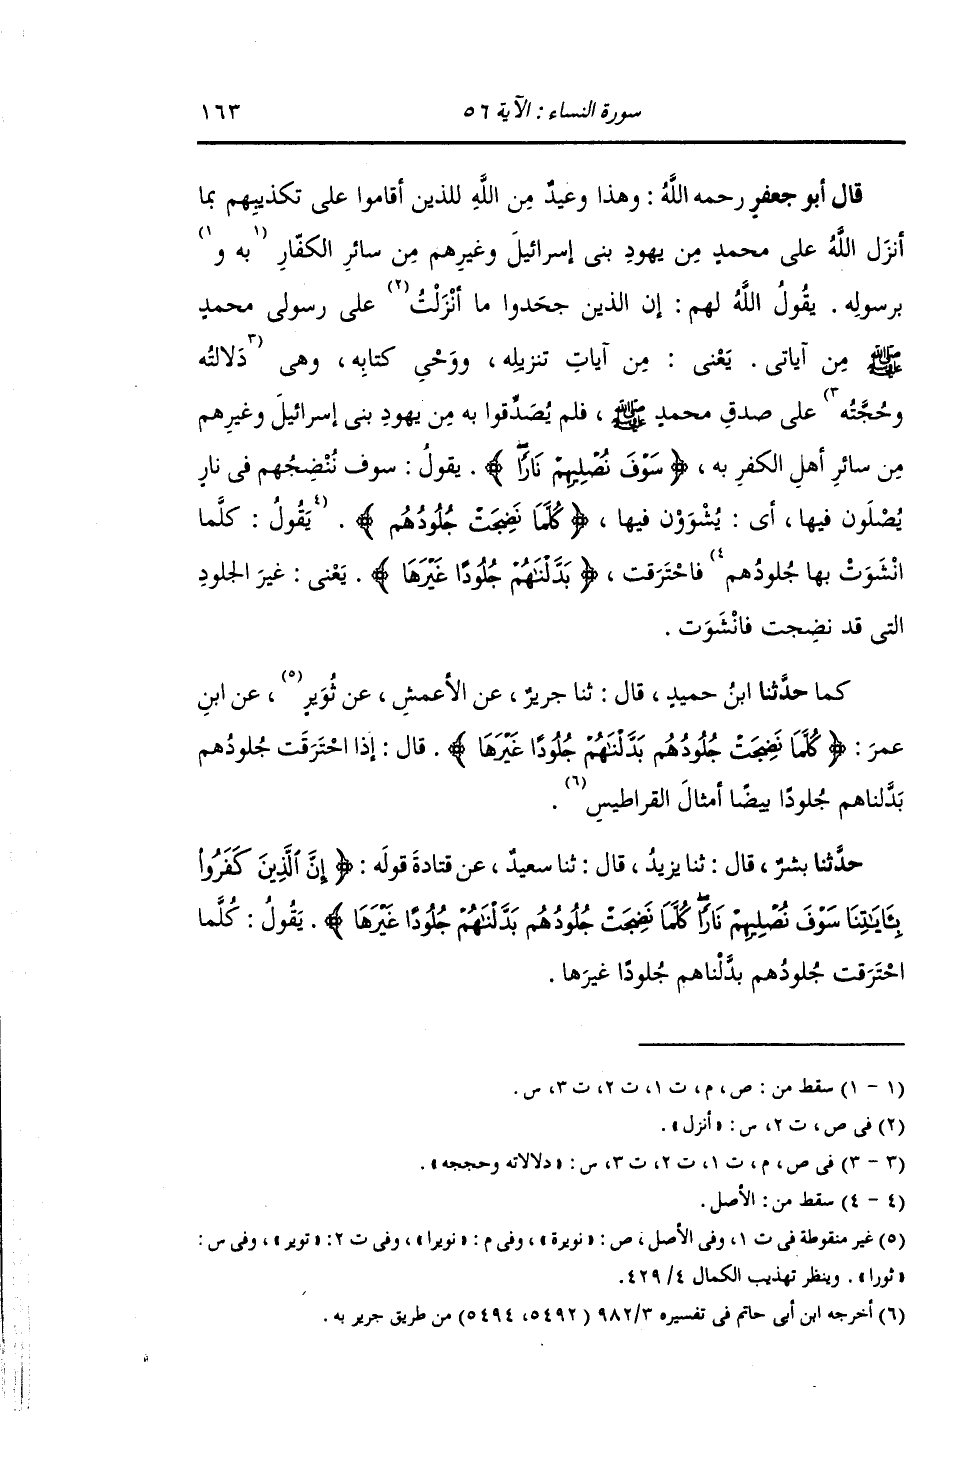 سورة النساء : الآية ٥٦
١٦٣
قال أبو جعفرٍ رحمه اللَّهُ : وهذا وعيدٌ مِن اللَّهِ للذين أقاموا على تكذيبِهم بما
أنزَل اللَّهُ على محمدٍ مِن يهودِ بنى إسرائيلَ وغيرِهم مِن سائرِ الكفّارِ (١ به و ١)
برسولِه . يقُولُ اللَّهُ لهم : إن الذين جحَدوا ما أنْزَلْتُ (٢) على رسولى محمدٍ
ﷺ مِن آياتى . يَعْنى : مِن آياتِ تنزيلِه ، ووَحْيِ كتابِه ، وهى (٣ دَلالتُه
وحُجَّتُه ٣) على صدقِ محمدٍ ﷺ ، فلم يُصَدِّقوا به مِن يهودِ بنى إسرائيلَ وغيرِهم
مِن سائرِ أهلِ الكفرِ به ، ﴿ سَوْفَ نُصْلِيهِمْ نَارًا ﴾ . يقولُ : سوف نُنْضِجُهم فى نارٍ
يُصْلَون فيها ، أى : يُشْوَوْن فيها ، ﴿ كُلَّمَا نَضِجَتْ جُلُودُهُم ﴾ . (٤ يَقُولُ : كلَّما
انْشَوَتْ بها جُلودُهم ٤) فاحْتَرَقت ، ﴿ بَدَّلْنَٰهُمْ جُلُودًا غَيْرَهَا ﴾ . يَعْنى : غيرَ الجلودِ
التى قد نضِجت فانْشَوَت .
كما حدَّثنا ابنُ حميدٍ ، قال : ثنا جريرٌ ، عن الأعمشِ ، عن ثُوَيرٍ (٥) ، عن ابنِ
عمرَ : ﴿ كُلَّمَا نَضِجَتْ جُلُودُهُم بَدَّلْنَٰهُمْ جُلُودًا غَيْرَهَا ﴾ . قال : إذا احْتَرَقَت جُلودُهم
بَدَّلناهم جُلودًا بيضًا أمثالَ القراطيسِ (٦) .
حدَّثنا بشرٌ ، قال : ثنا يزيدُ ، قال : ثنا سعيدٌ ، عن قتادةَ قولَه : ﴿ إِنَّ ٱلَّذِينَ كَفَرُوا۟
بِـَٔايَٰتِنَا سَوْفَ نُصْلِيهِمْ نَارًا كُلَّمَا نَضِجَتْ جُلُودُهُم بَدَّلْنَٰهُمْ جُلُودًا غَيْرَهَا ﴾ . يَقُولُ : كُلَّما
احْتَرَقت جُلودُهم بدَّلْناهم جُلودًا غيرَها .
(١ - ١) سقط من : ص ، م ، ت ١ ، ت ٢ ، ت ٣ ، س .
(٢) فى ص ، ت ٢ ، س : « أنزل » .
(٣ - ٣) فى ص ، م ، ت ١ ، ت ٢ ، ت ٣ ، س : « دلالاته وحججه » .
(٤ - ٤) سقط من : الأصل .
(٥) غير منقوطة فى ت ١ ، وفى الأصل ، ص : « نويرة » ، وفى م : « نويرا » ، وفى ت ٢ : « توير » ، وفى س :
« ثورا » . وينظر تهذيب الكمال ٤/ ٤٢٩ .
(٦) أخرجه ابن أبى حاتم فى تفسيره ٩٨٢/٣ ( ٥٤٩٢ ، ٥٤٩٤ ) من طريق جرير به .